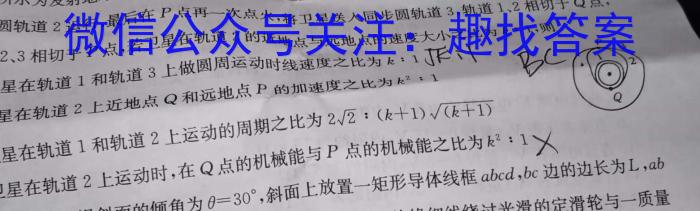 圆轨道2 最后在P点再一次点火,将卫星送入同步圆轨道3,轨道1、2相切于Q点,
2、3相切于P点,
微信公众号关注:趣找答案
星在轨道1和轨道3上做圆周运动时线速度之比为k:1
BC
2
Q
星在轨道2上近地点Q和远地点P的加速度之比为k²:1
星在轨道1和轨道2上运动的周期之比为2√2:(k+1)√(k+1)
卫星在轨道2上运动时,在Q点的机械能与P点的机械能之比为k²:1 X
斜面的倾角为θ=30°,斜面上放置一矩形导体线框abcd,bc边的边长为L,ab
细线绕过光滑的定滑轮与一质量